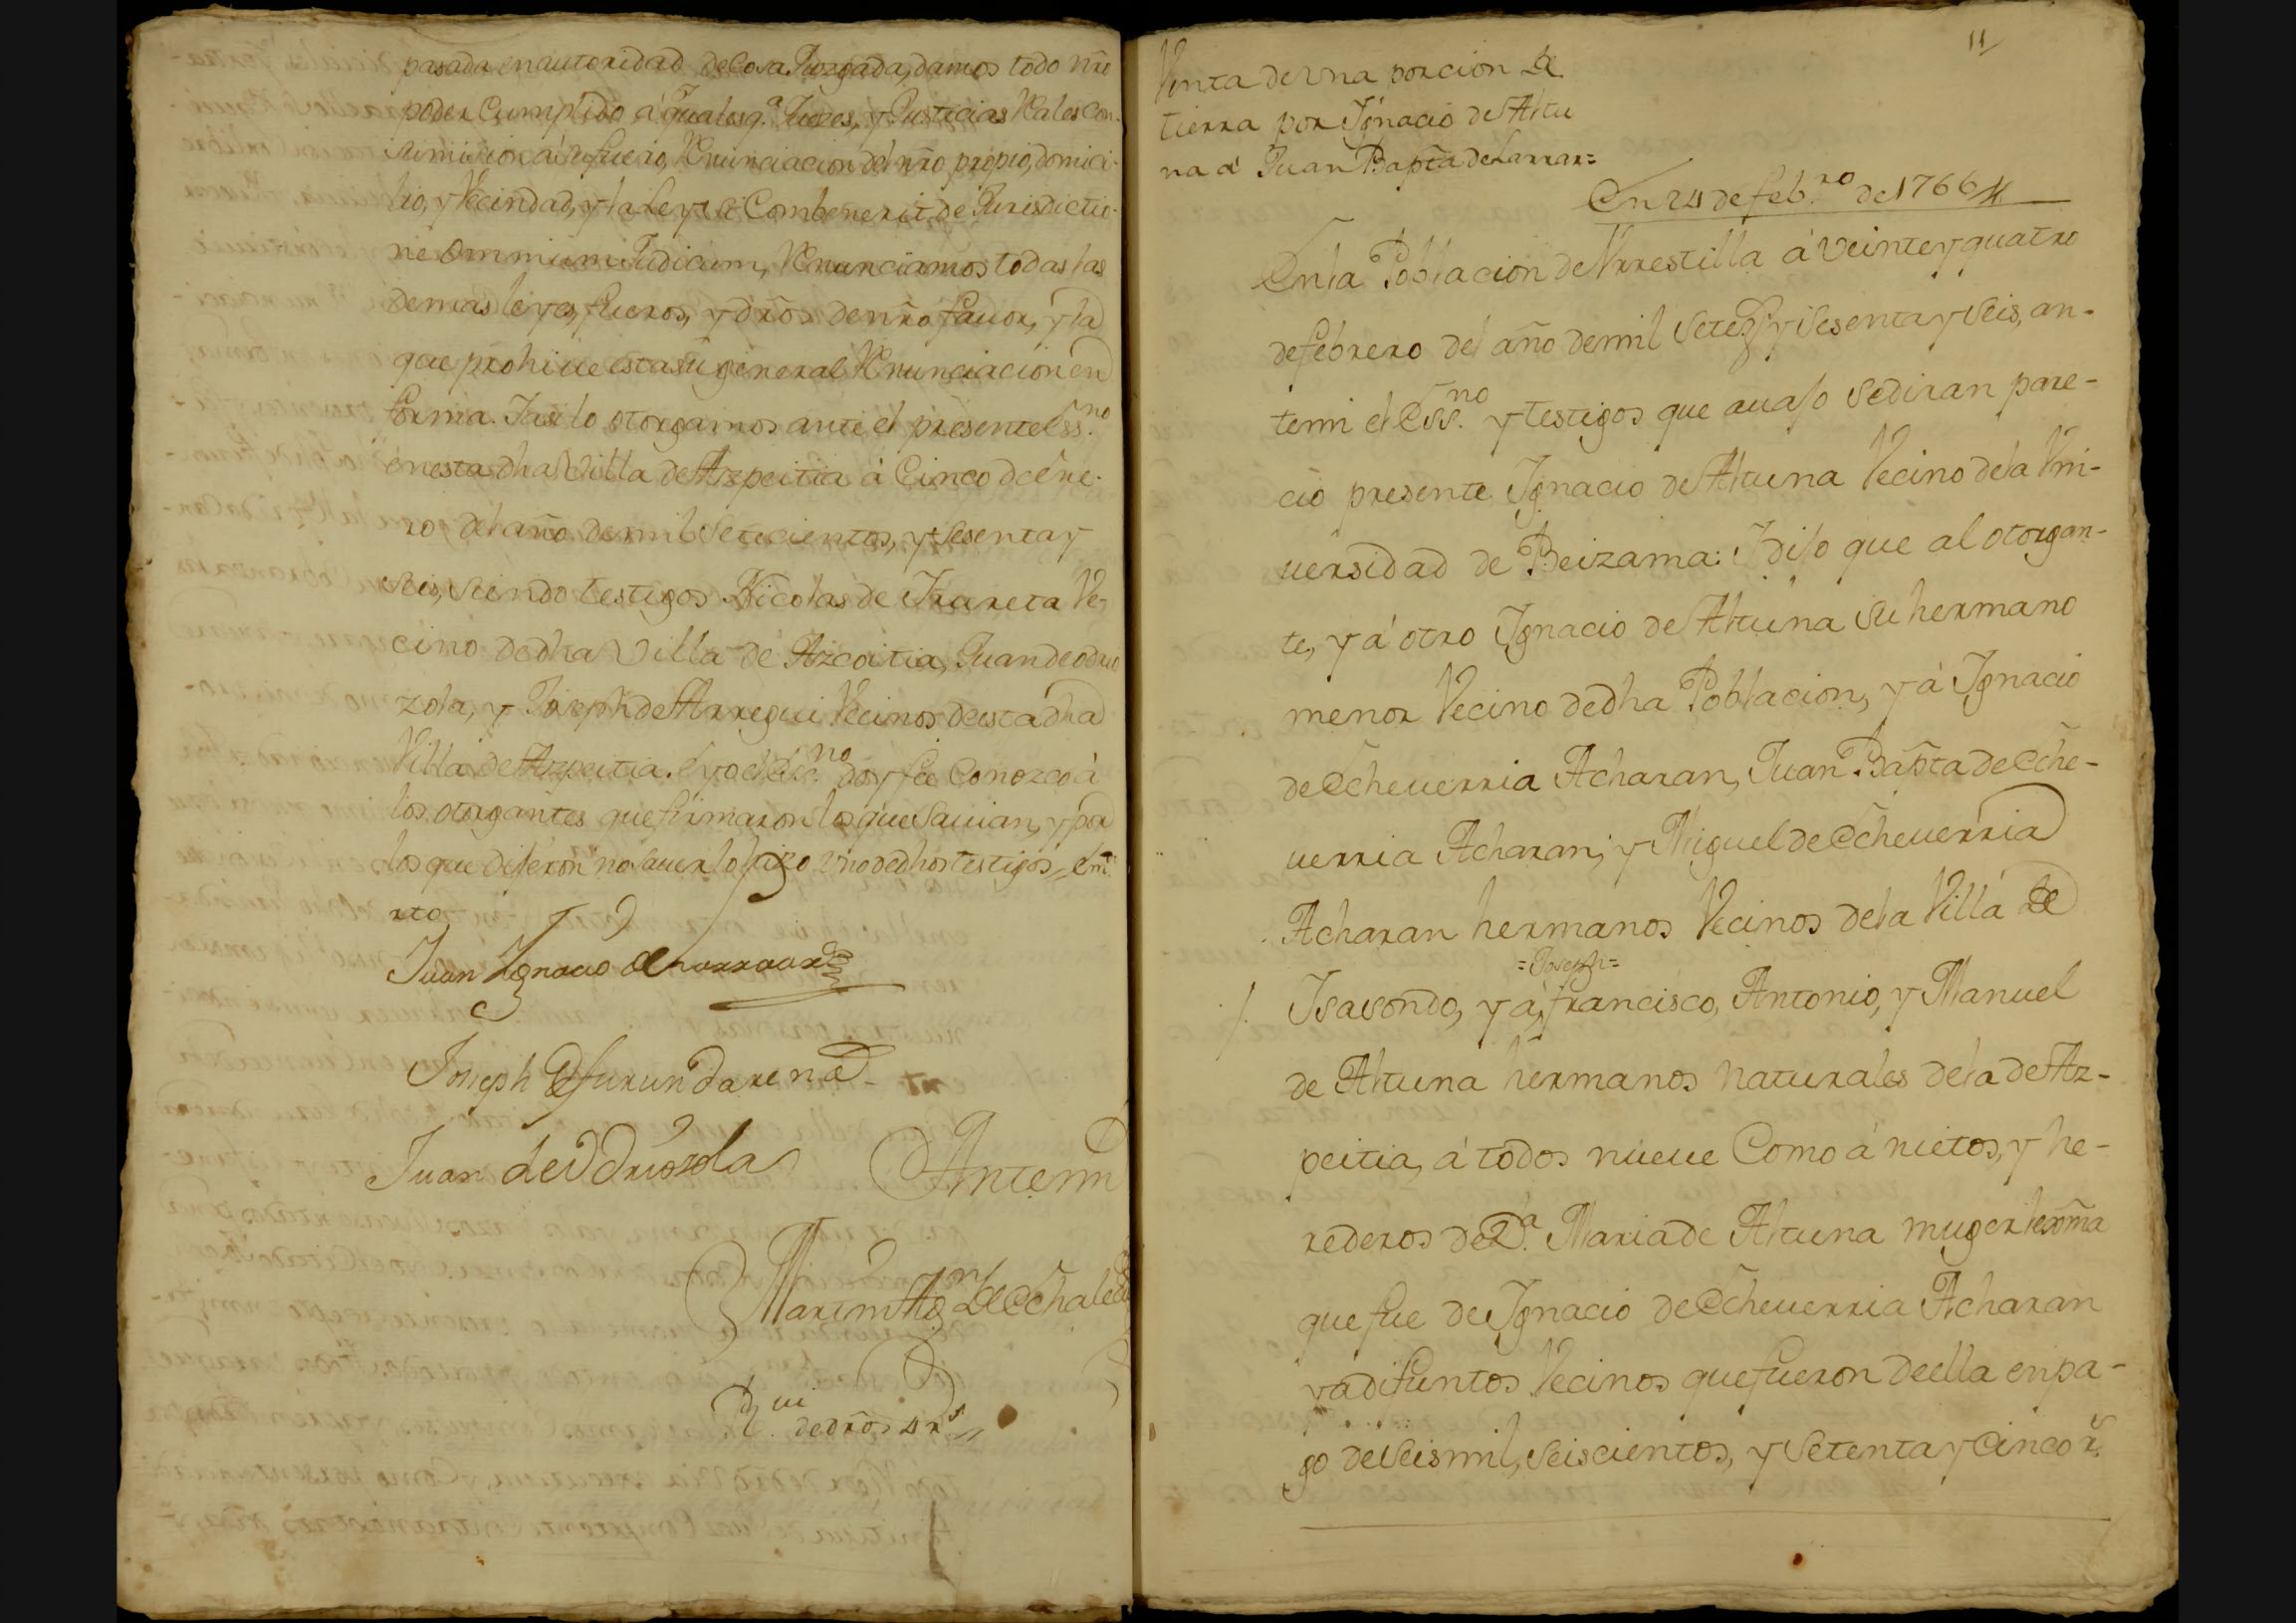 pasada en autoridad de Cosa Juzgada, damos todo nr̃o
poder Cumplido á qualesq.ª Juezes, y Justicias Rales Con
sumision á su fuero, Renunciacion del nr̃o propio, domici-
lio, y Vecindad, y la ley si Combenerit, de Jurisdictio-
ne Omnium Judicum, Renunciamos todas las
demas leyes, fueros, y dr̃os de nr̃o fauor, y la
que prohiue esta su general Renunciacion en
forma. Y asi lo otorgamos ante el presente Ess.no
en esta dha Villa de Azpeitia á Cinco de ene-
ro del año de mil Setecientos, y Sesenta y
seis, siendo testigos Nicolas de Ybareta Ve-
cino de dha Villa de Azcoitia, Juan de odrio
zola, y Joseph de Arregui Vecinos de esta dha
Villa de Azpeitia. e yo el Ess.no doy fee Conozco á
los otorgantes que firmaron los que sauian, y por
los que dijeron no sauer lo hizo vno de dhos testigos,, em.
rto
Juan Ygnacio de
Joseph de furundarena
Juan de Odriozola
Antemi
Martin Ag.n de Echale
R. ui de dr̃os 4 r.s
11
Venta de vna porcion de
tierra por Ygnacio de Altu
na á Juan Bap̃ta de Larrar=
En 24 de feb.ro de 1766
En la Poblacion de Vrrestilla á veinte y quatro
de febrero del año de mil setez.s y sesenta y seis, an-
temi el Ess.no y testigos que auajo se diran pare-
cio presente Ygnacio de Altuna Vecino de la Vni-
uersidad de Beizama: Y dijo que al otorgan-
te, y á otro Ygnacio de Altuna su hermano
menor Vecino de dha Poblacion, y á Ygnacio
de Echeuerria Acharan, Juan Bap̃ta de Eche-
uerria Acharan, y Miguel de Echeuerria
Acharan hermanos Vecinos de la Villa de
=Joseph=
Ysasondo, y á, francisco, Antonio, y Manuel
de Altuna hermanos naturales de la de Az-
peitia, á todos nueue Como á nietos, y he-
rederos de D.ª Maria de Altuna muger lexm̃a
que fue de Ygnacio de Echeuerria Acharan
ya difuntos Vecinos que fueron de ella en pa-
go de seis mil, seiscientos, y setenta y cinco r.s